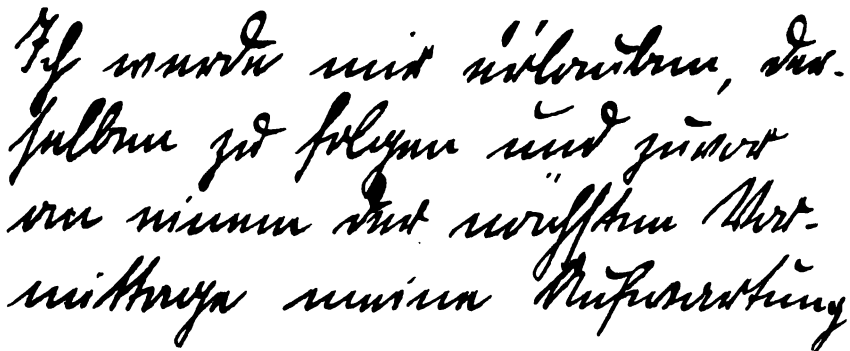 Ich werde mir erlauben, der-
selben zu folgen und zuvor
an einem der nächsten Vor-
mittage meine Aufwartung